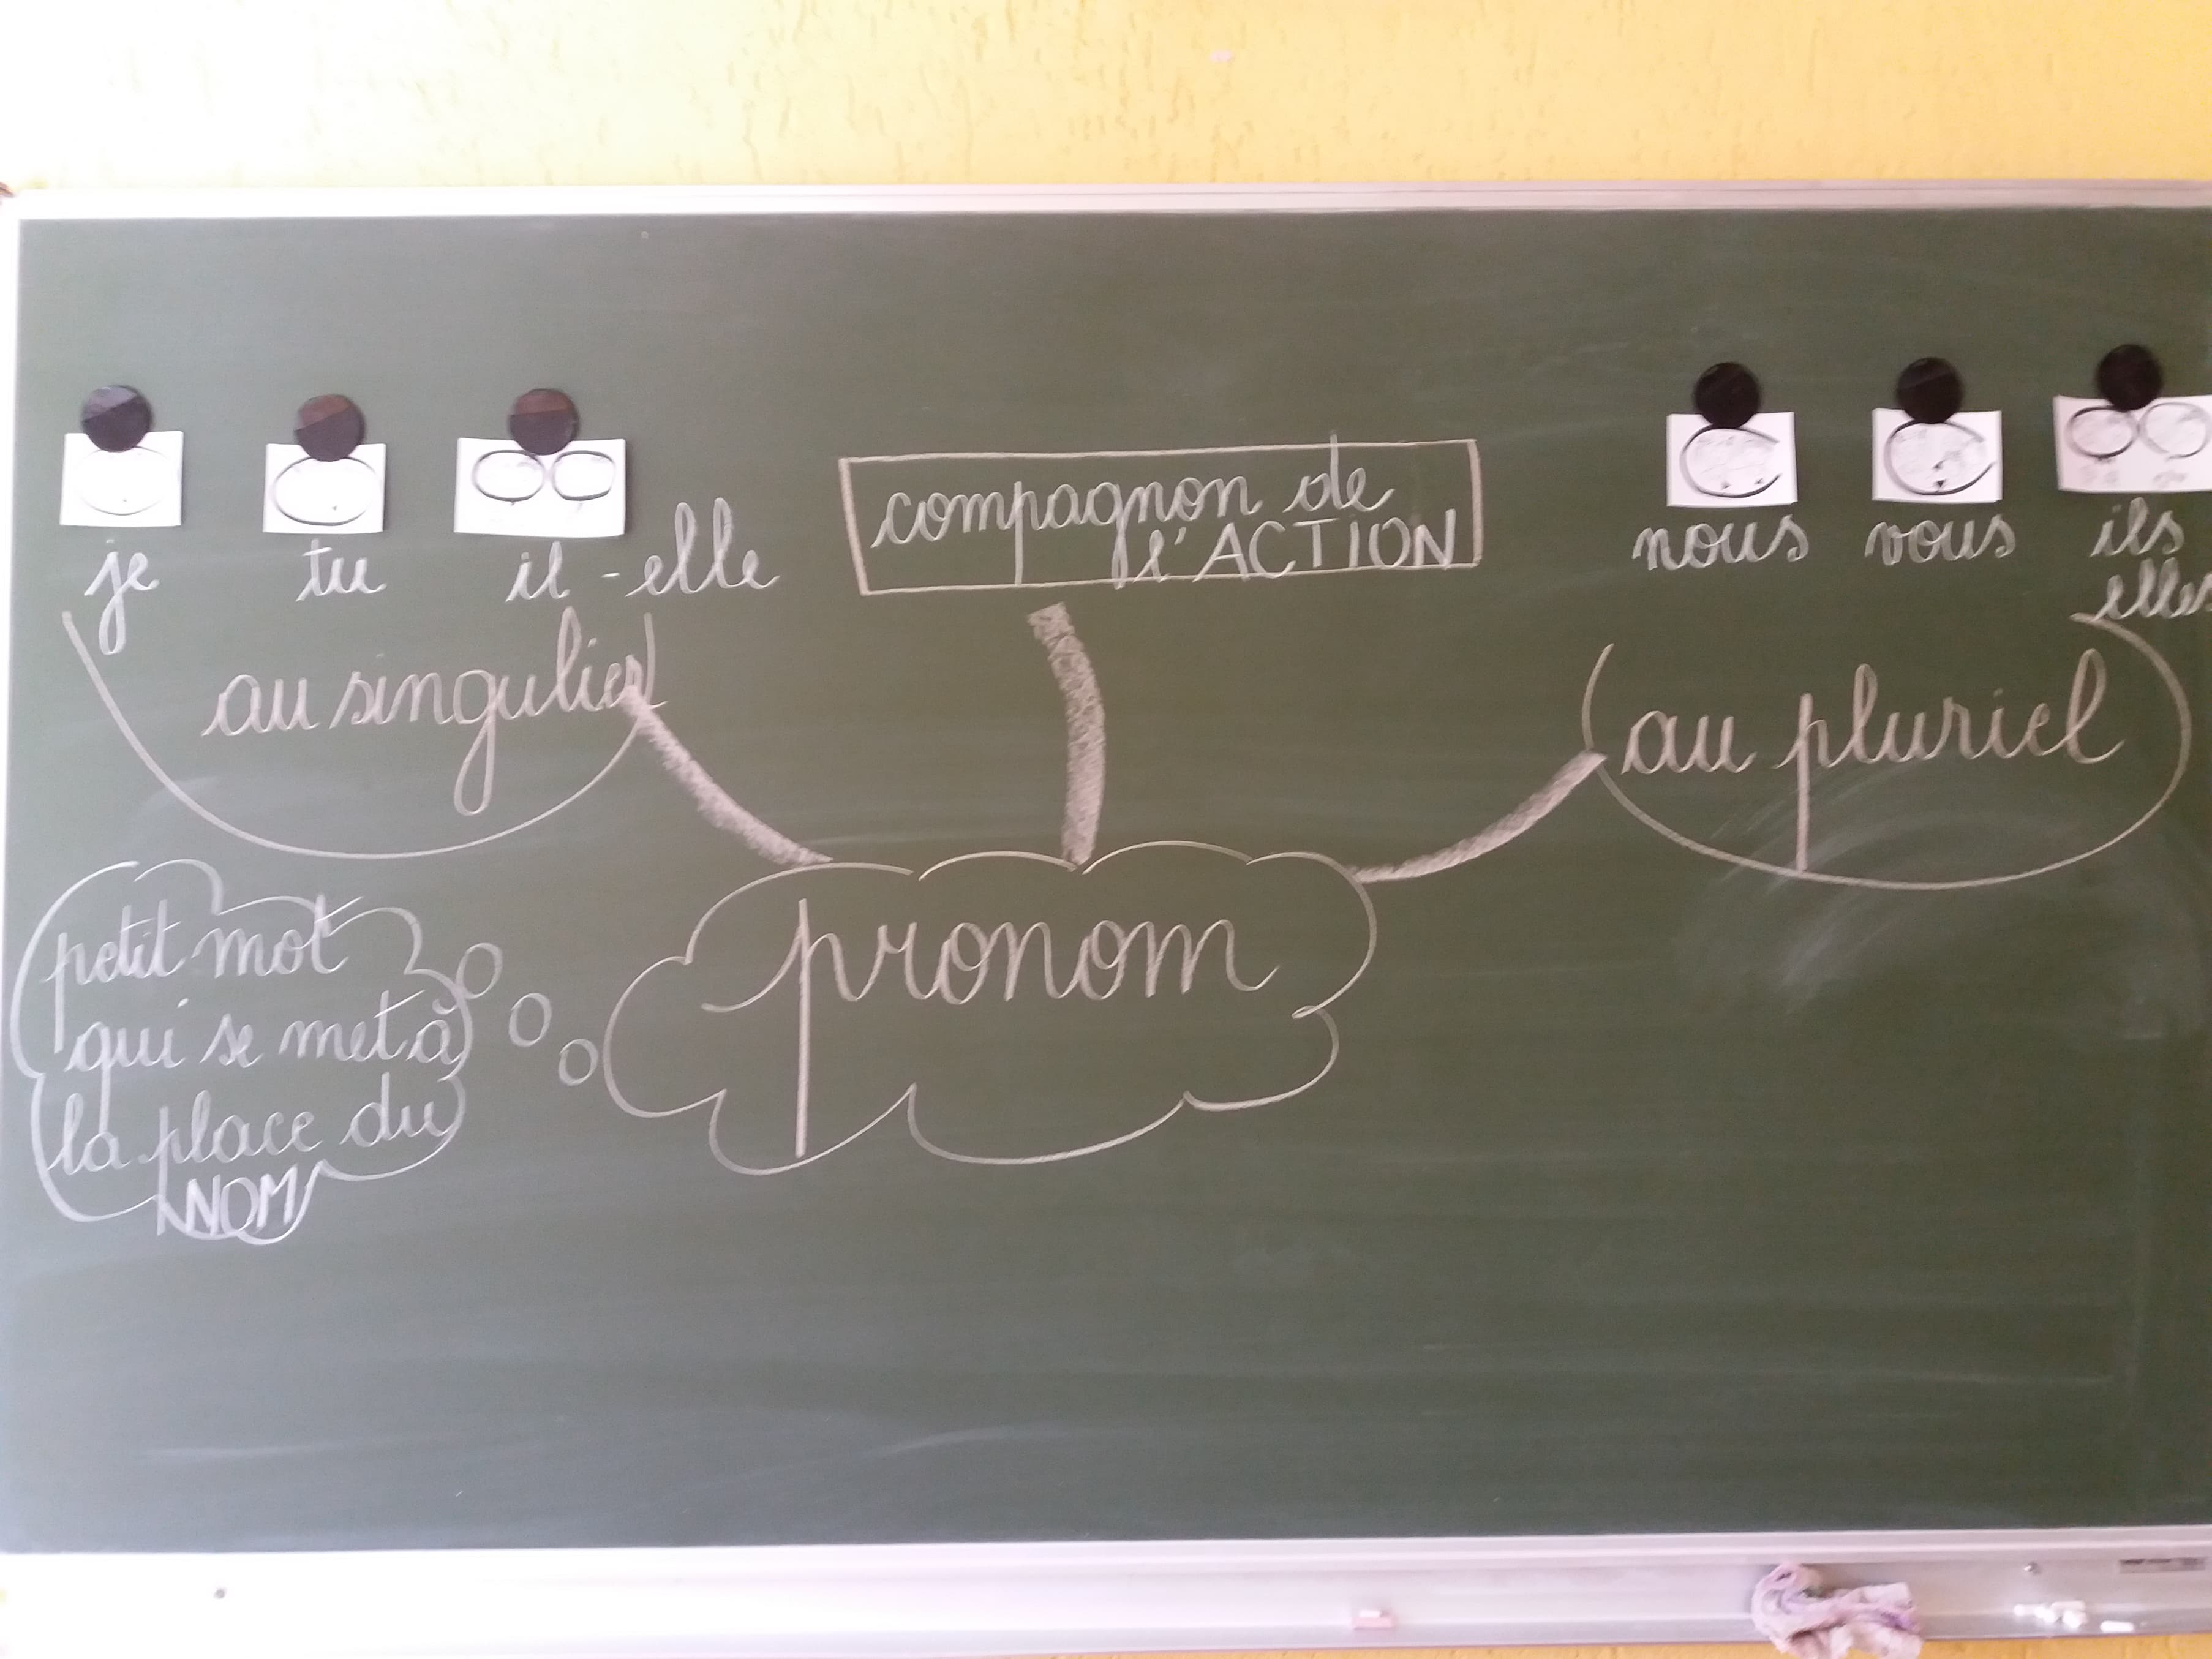 je tu il - elle
au singulier
compagnon de
l'ACTION
nous vous ils
elles
au pluriel
pronom
petit mot
qui se met à
la place du
NOM